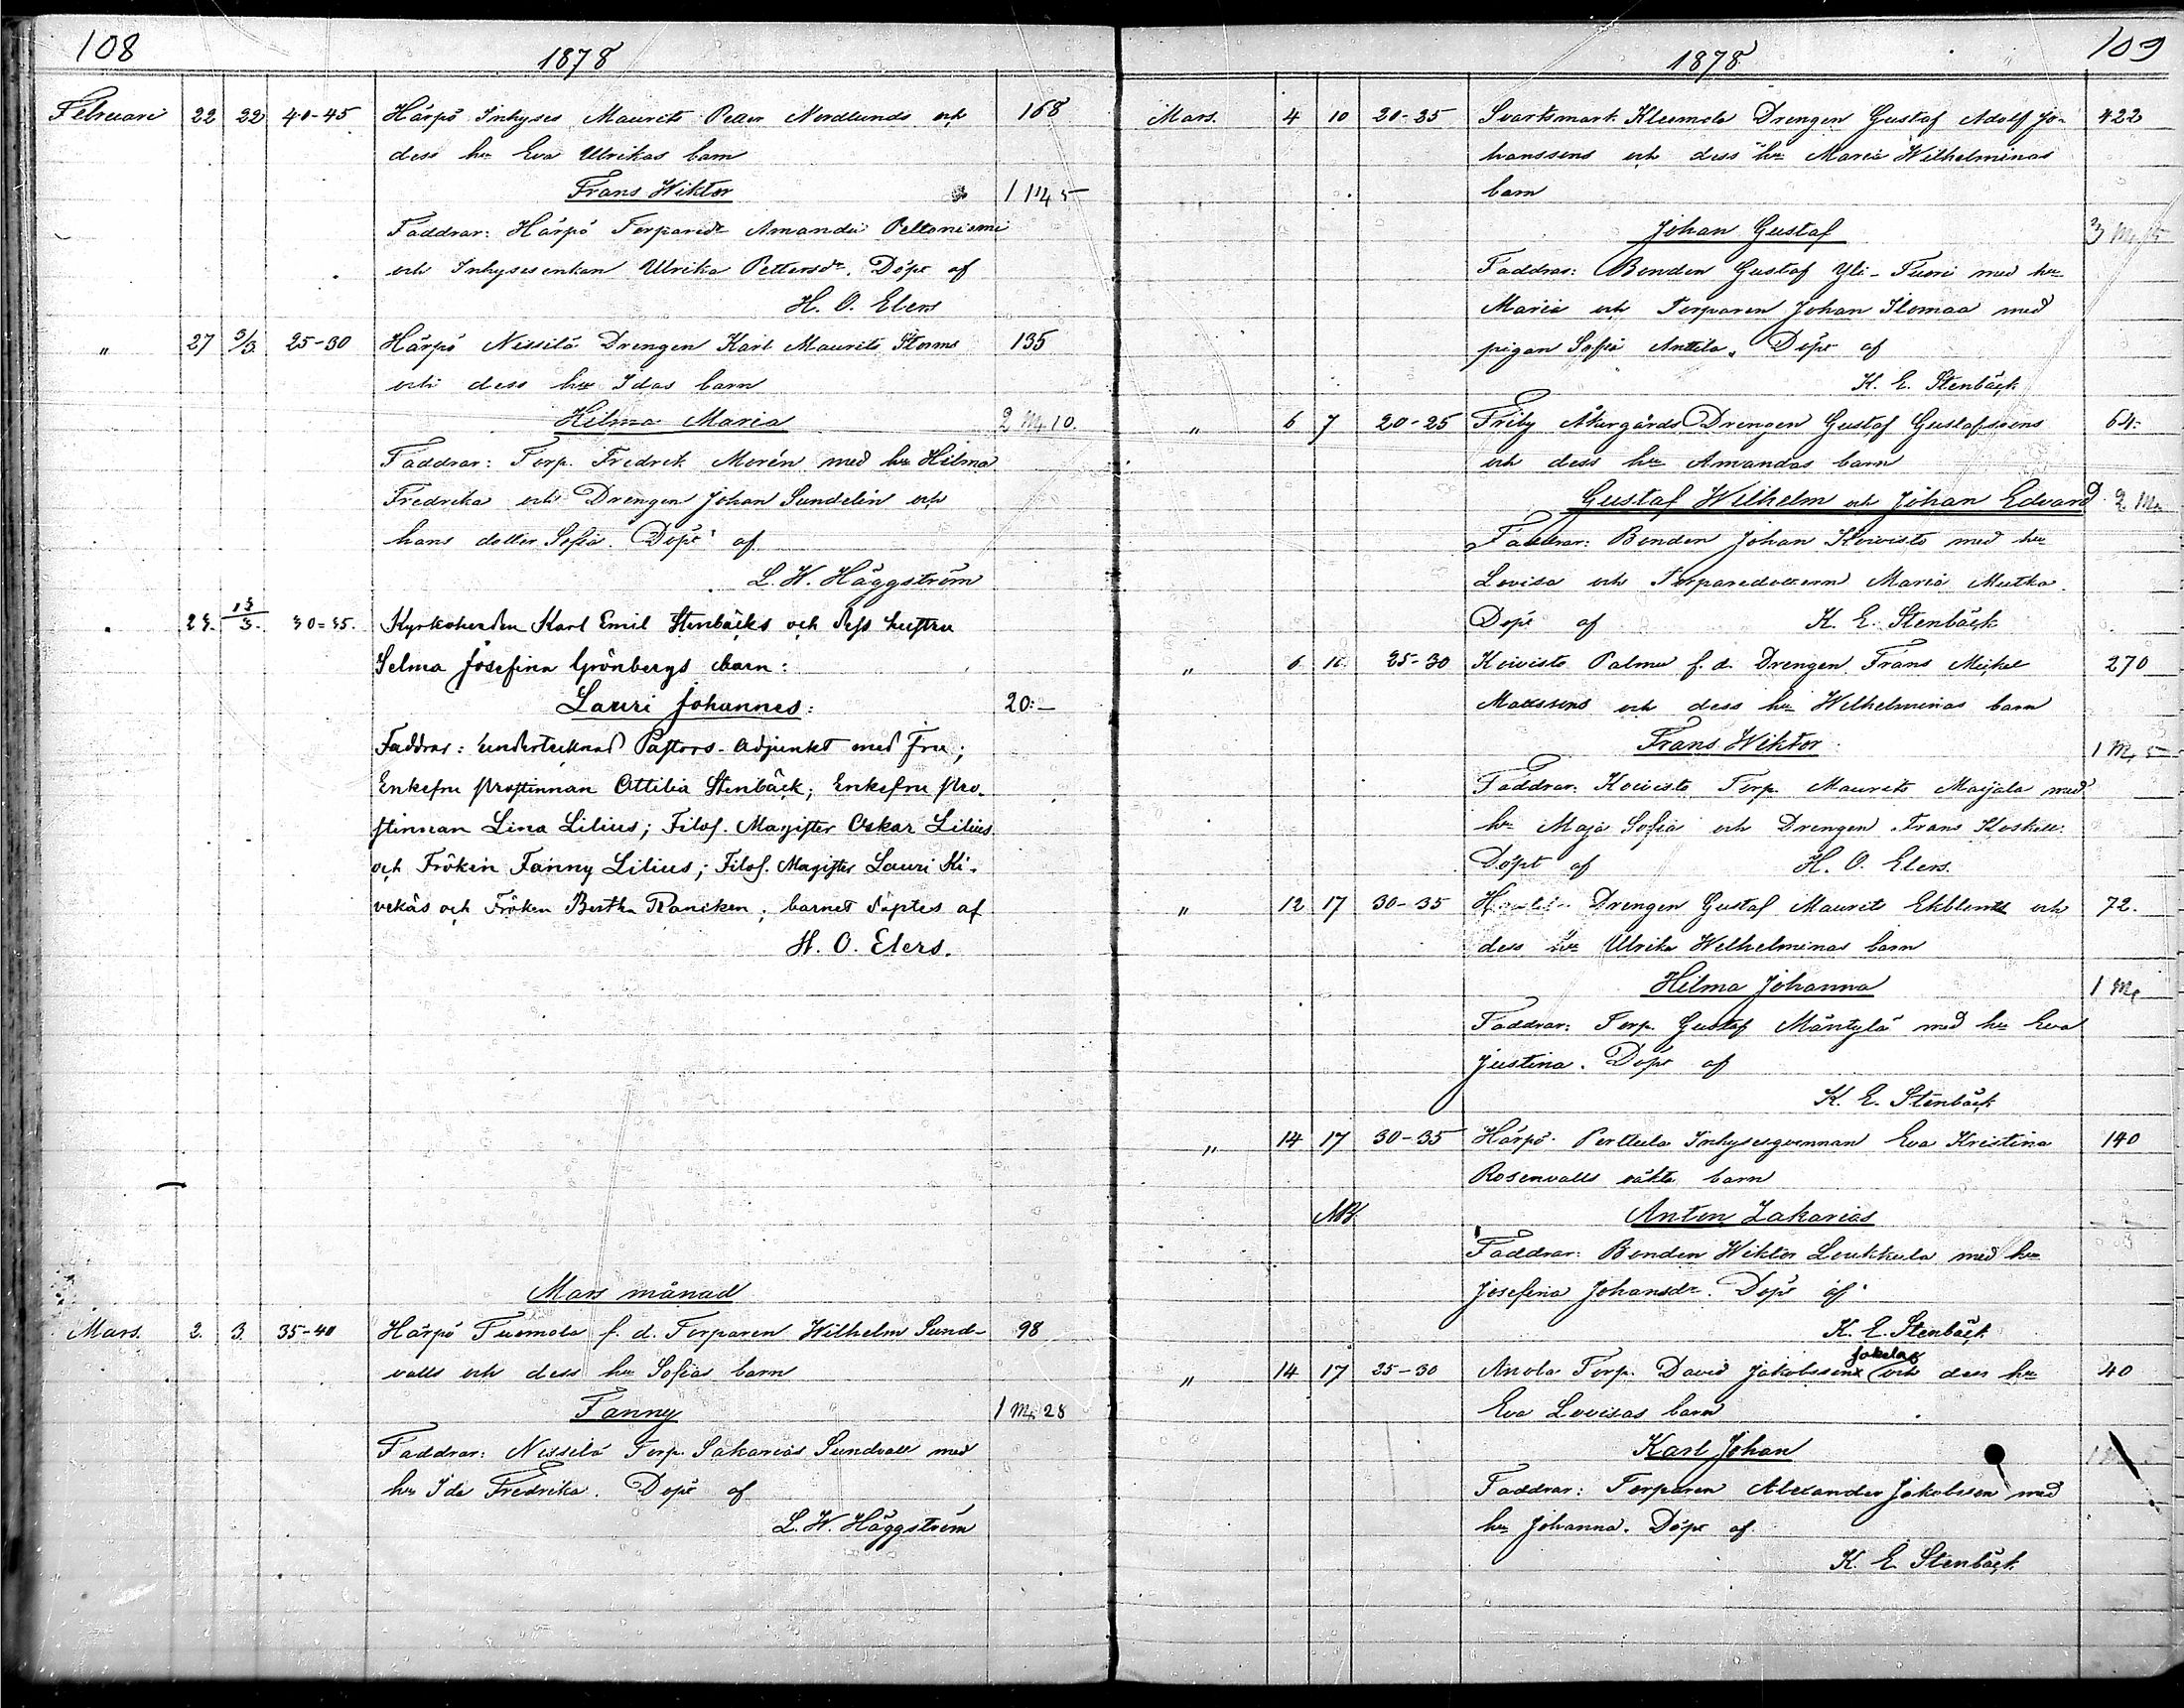 108
1878
Februari 22 22 40-45 Härpö Inhyses Maurits Petter Nordlunds och 168
dess hu Eva Ulrikas barn
Frans Wiktor 1 M 45
Faddrar: Härpö Torparedr Amanda Peltoniemi
och Inhysesenkan Ulrika Pettersdr. Döpt af
H. O. Elers
" 27 3/3. 25-30 Härpö Nissilä Drengen Karl Maurits Storms 135
och dess hu Idas barn
Hilma Maria 2 M. 10.
Faddrar: Torp. Fredrik Morén med hu Hilma
Fredrika och Drengen Johan Sundelin och
hans dotter Sofia. Döpt af
L. W. Häggström
30-35. Kyrkoherden Karl Emil Stenbäcks och dess hustru
Selma Josefina Grönbergs barn:
Lauri Johannes: 20:-
Faddrar: undertecknad Pastors-Adjunkt med Fru;
Enkefru Prostinnan Ottilia Stenbäck; Enkefru Pro-
stinnan Lina Lilius; Filos. Magister Oskar Lilius
och Fröken Fanny Lilius; Filos. Magister Lauri Ki-
vekäs och Fröken Bertha Rancken; barnet döptes af
H. O. Elers.
Mars månad
Mars. 2. 3. 35-40 Härpö Tuomola f. d. Torparen Wilhelm Sund- 98
valls och dess hu Sofias barn
Fanny 1 M. 28
Faddrar: Nissilä Torp. Sakarias Sundvall med
hu Ida Fredrika. Döpt af
L. W. Häggström
109
1878
Mars. 4 10 20-25 Svartsmark Kleemola Drengen Gustaf Adolf Jo- 422
hanssons och dess hu Maria Wilhelminas
barn
Johan Gustaf
Faddrar: Bonden Gustaf Yli-Tuori med hu
Maria och Torparen Johan Ilomaa med
pigan Sofia Antila. Döpt af
K. E. Stenbäck
" 6 7 20-25 Friby Åkergårds Drengen Gustaf Gustafssons 64.
och dess hu Amandas barn
Gustaf Wilhelm och Johan Edvard 2 M.
Faddrar: Bonden Johan Koivisto med hu
Lovisa och Torparedottern Maria Mutka.
Döpt af K. E. Stenbäck
" 6 25-30 Koivisto Palmu f. d. Drengen Frans Mickel 270
Mattssons och dess hu Wilhelminas barn
Frans Wiktor 1 M. 5
Faddrar: Koivisto Torp. Maurits Maijala med
hu Maja Sofia och Drengen Frans
Döpt af H. O. Elers.
" 12 17 30-35 Drengen Gustaf Maurits och 72.
dess hu Ulrika Wilhelminas barn
Hilma Johanna 1 M.
Faddrar: Torp. Gustaf Mäntylä med hu Eva
Justina. Döpt af
K. E. Stenbäck
" 14 17 30-35 Härpö Perttula Inhysesqvinnan Eva Kristina 140
Rosenvalls oäkta barn
NB. Anton Zakarias
Faddrar: Bonden Wiktor Loukkula med hu
Josefina Johansdr. Döpt af
K. E. Stenbäck
Jakolas
" 14 17 25-30 Anola Torp. David Jakobsson och dess hu 40
Eva Lovisas barn
Karl Johan
Faddrar: Torparen Alexander Jakobsson med
hu Johanna. Döpt af
K. E. Stenbäck